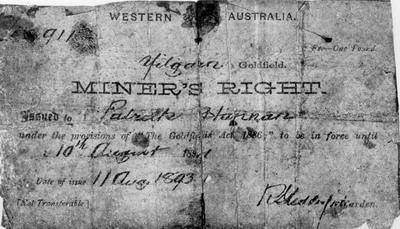 WESTERN AUSTRALIA.
911
Fee—One Pound.
Yilgarn Goldfield.
MINER'S RIGHT.
Issued to Patrick Hannan
under the provisions of "The Goldfields Act, 1886," to be in force until
10th August 189
Date of issue 11 Aug. 1893
Warden.
[Not Transferable]